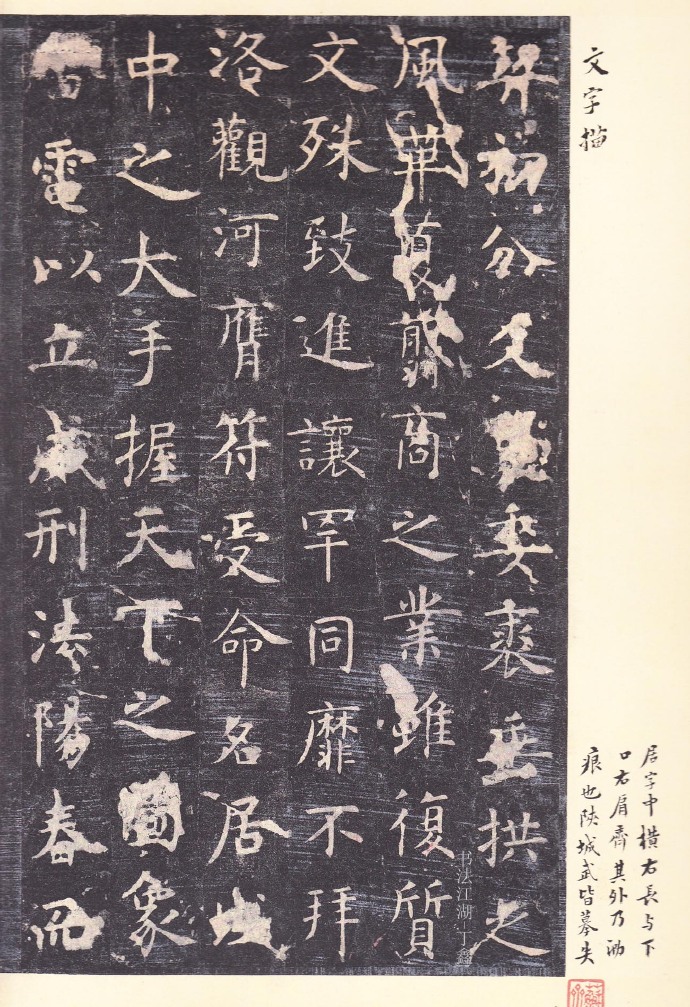 文字描
居字中橫右長与下
口右肩齊其外乃泐
痕也陕城武皆摹失
契初分爻象委裘垂拱之
風革夏翦商之業雖復質
文殊致進讓罕同靡不拜
洛觀河膺符受命名居域
中之大手握天下之圖象
雷電以立威刑法陽春而
书法江湖丁鑫